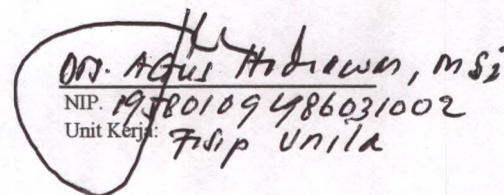 Drs. Agus Hadiawan, MSi
NIP. 195801091986031002
Unit Kerja: Fisip Unila